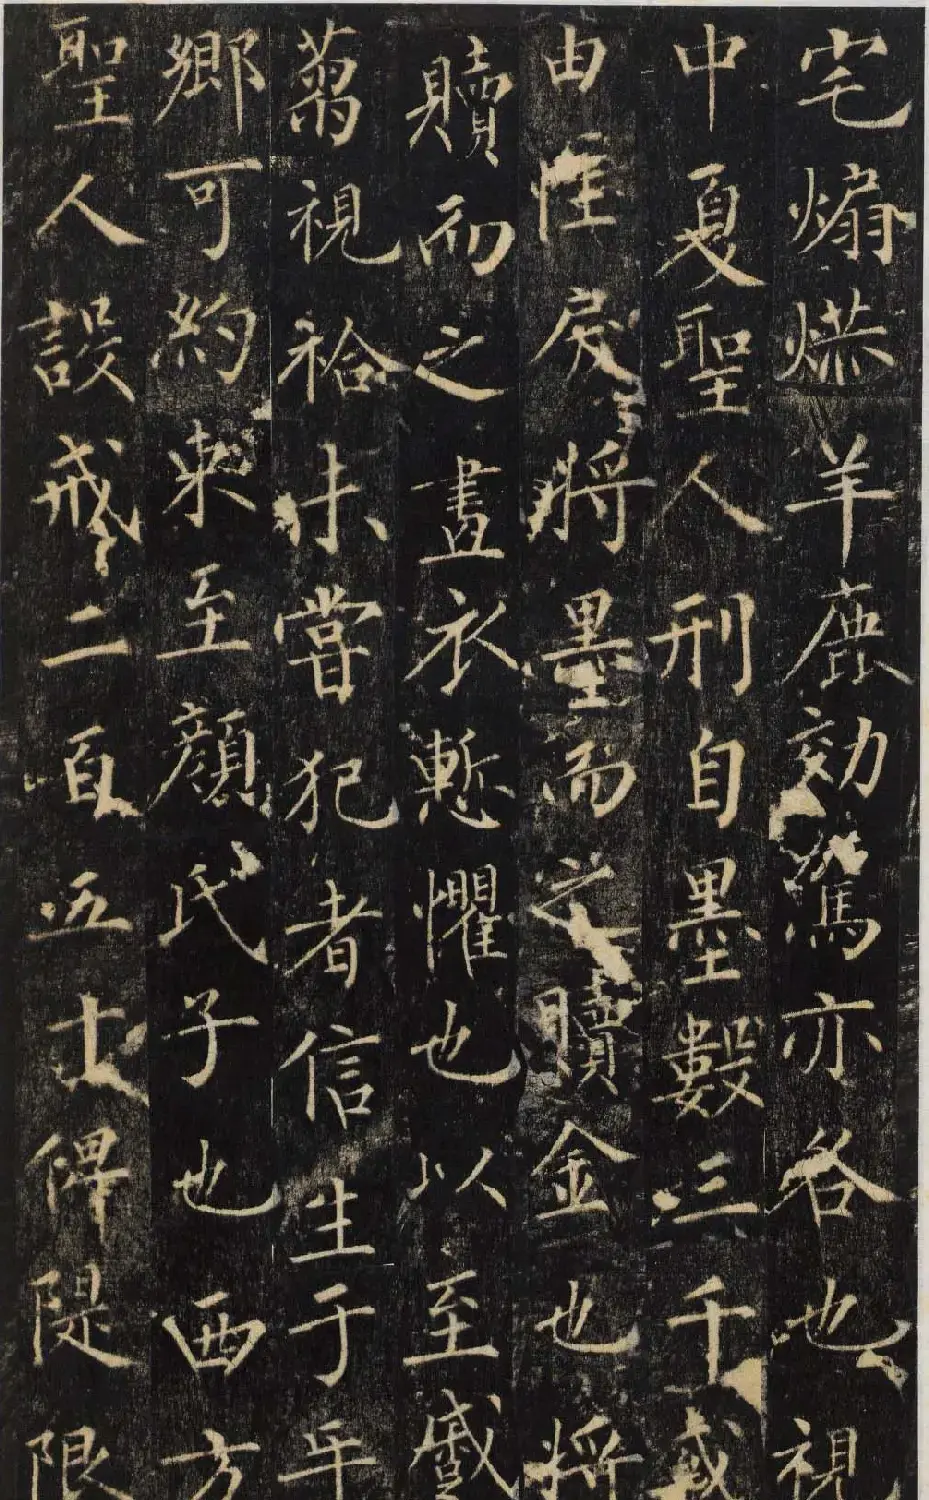 宅煽羊鹿効駕亦各也視
中夏聖人刑自墨數三千或
由惟戾將墨而之贖金也將
贖而之畫衣慙懼也以至戚
蒭視袷未嘗犯者信生于平
鄉可約束至顏氏子也西方
聖人設戒二百五十俾隄限